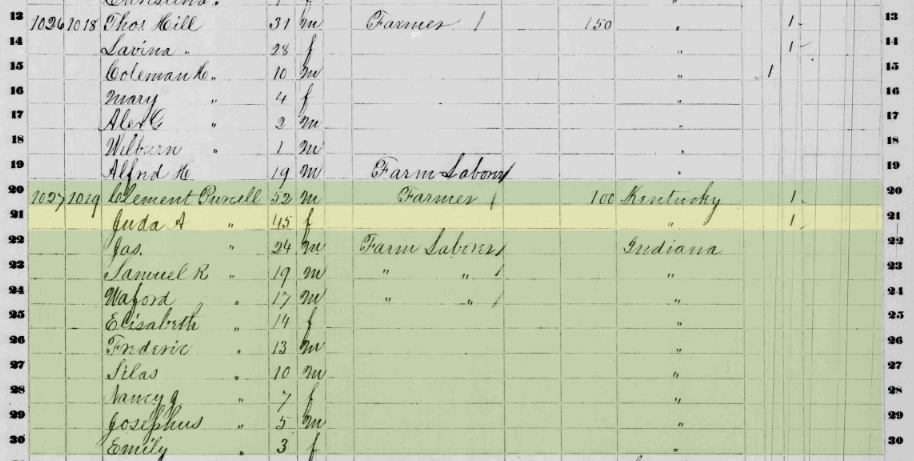 13 1026 1018 Thos Hill 31 m Farmer / 150 " 1 13
14 Lavina " 28 f " 1 14
15 Coleman H. " 10 m " 1 15
16 Mary " 4 f " 16
17 Alex G " 2 m " 17
18 Wilburn " 1 m " 18
19 Alfred H 19 m Farm Laborer / " 19
20 1027 1019 Clement Purcell 52 m Farmer / 100 Kentucky 1 20
21 Juda A " 45 f " 1 21
22 Jas. " 24 m Farm Laborer / Indiana 22
23 Samuel R " 19 m " " / " 23
24 Waford " 17 m " " / " 24
25 Elisabeth " 14 f " 25
26 Frederic " 13 m " 26
27 Silas " 10 m " 27
28 Nancy J " 7 f " 28
29 Josephus " 5 m " 29
30 Emily " 3 f 30